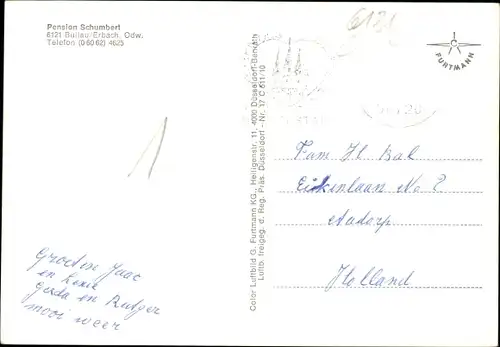 Pension Schumbert
6121 Bullau/Erbach, Odw.
Telefon (0 60 62) 4625
6121
C
FURTMANN
Color Luftbild G. Furtmann KG., Heiligenstr. 11, 4000 Düsseldorf-Benrath
Luftb. freigeg. d. Reg. Präs. Düsseldorf - Nr. 17 C 611/10
Fam H. Bal
Eikenlaan No 2
Holland
1
Groetjes Jaac
en
Gerda en Rutger
mooi weer